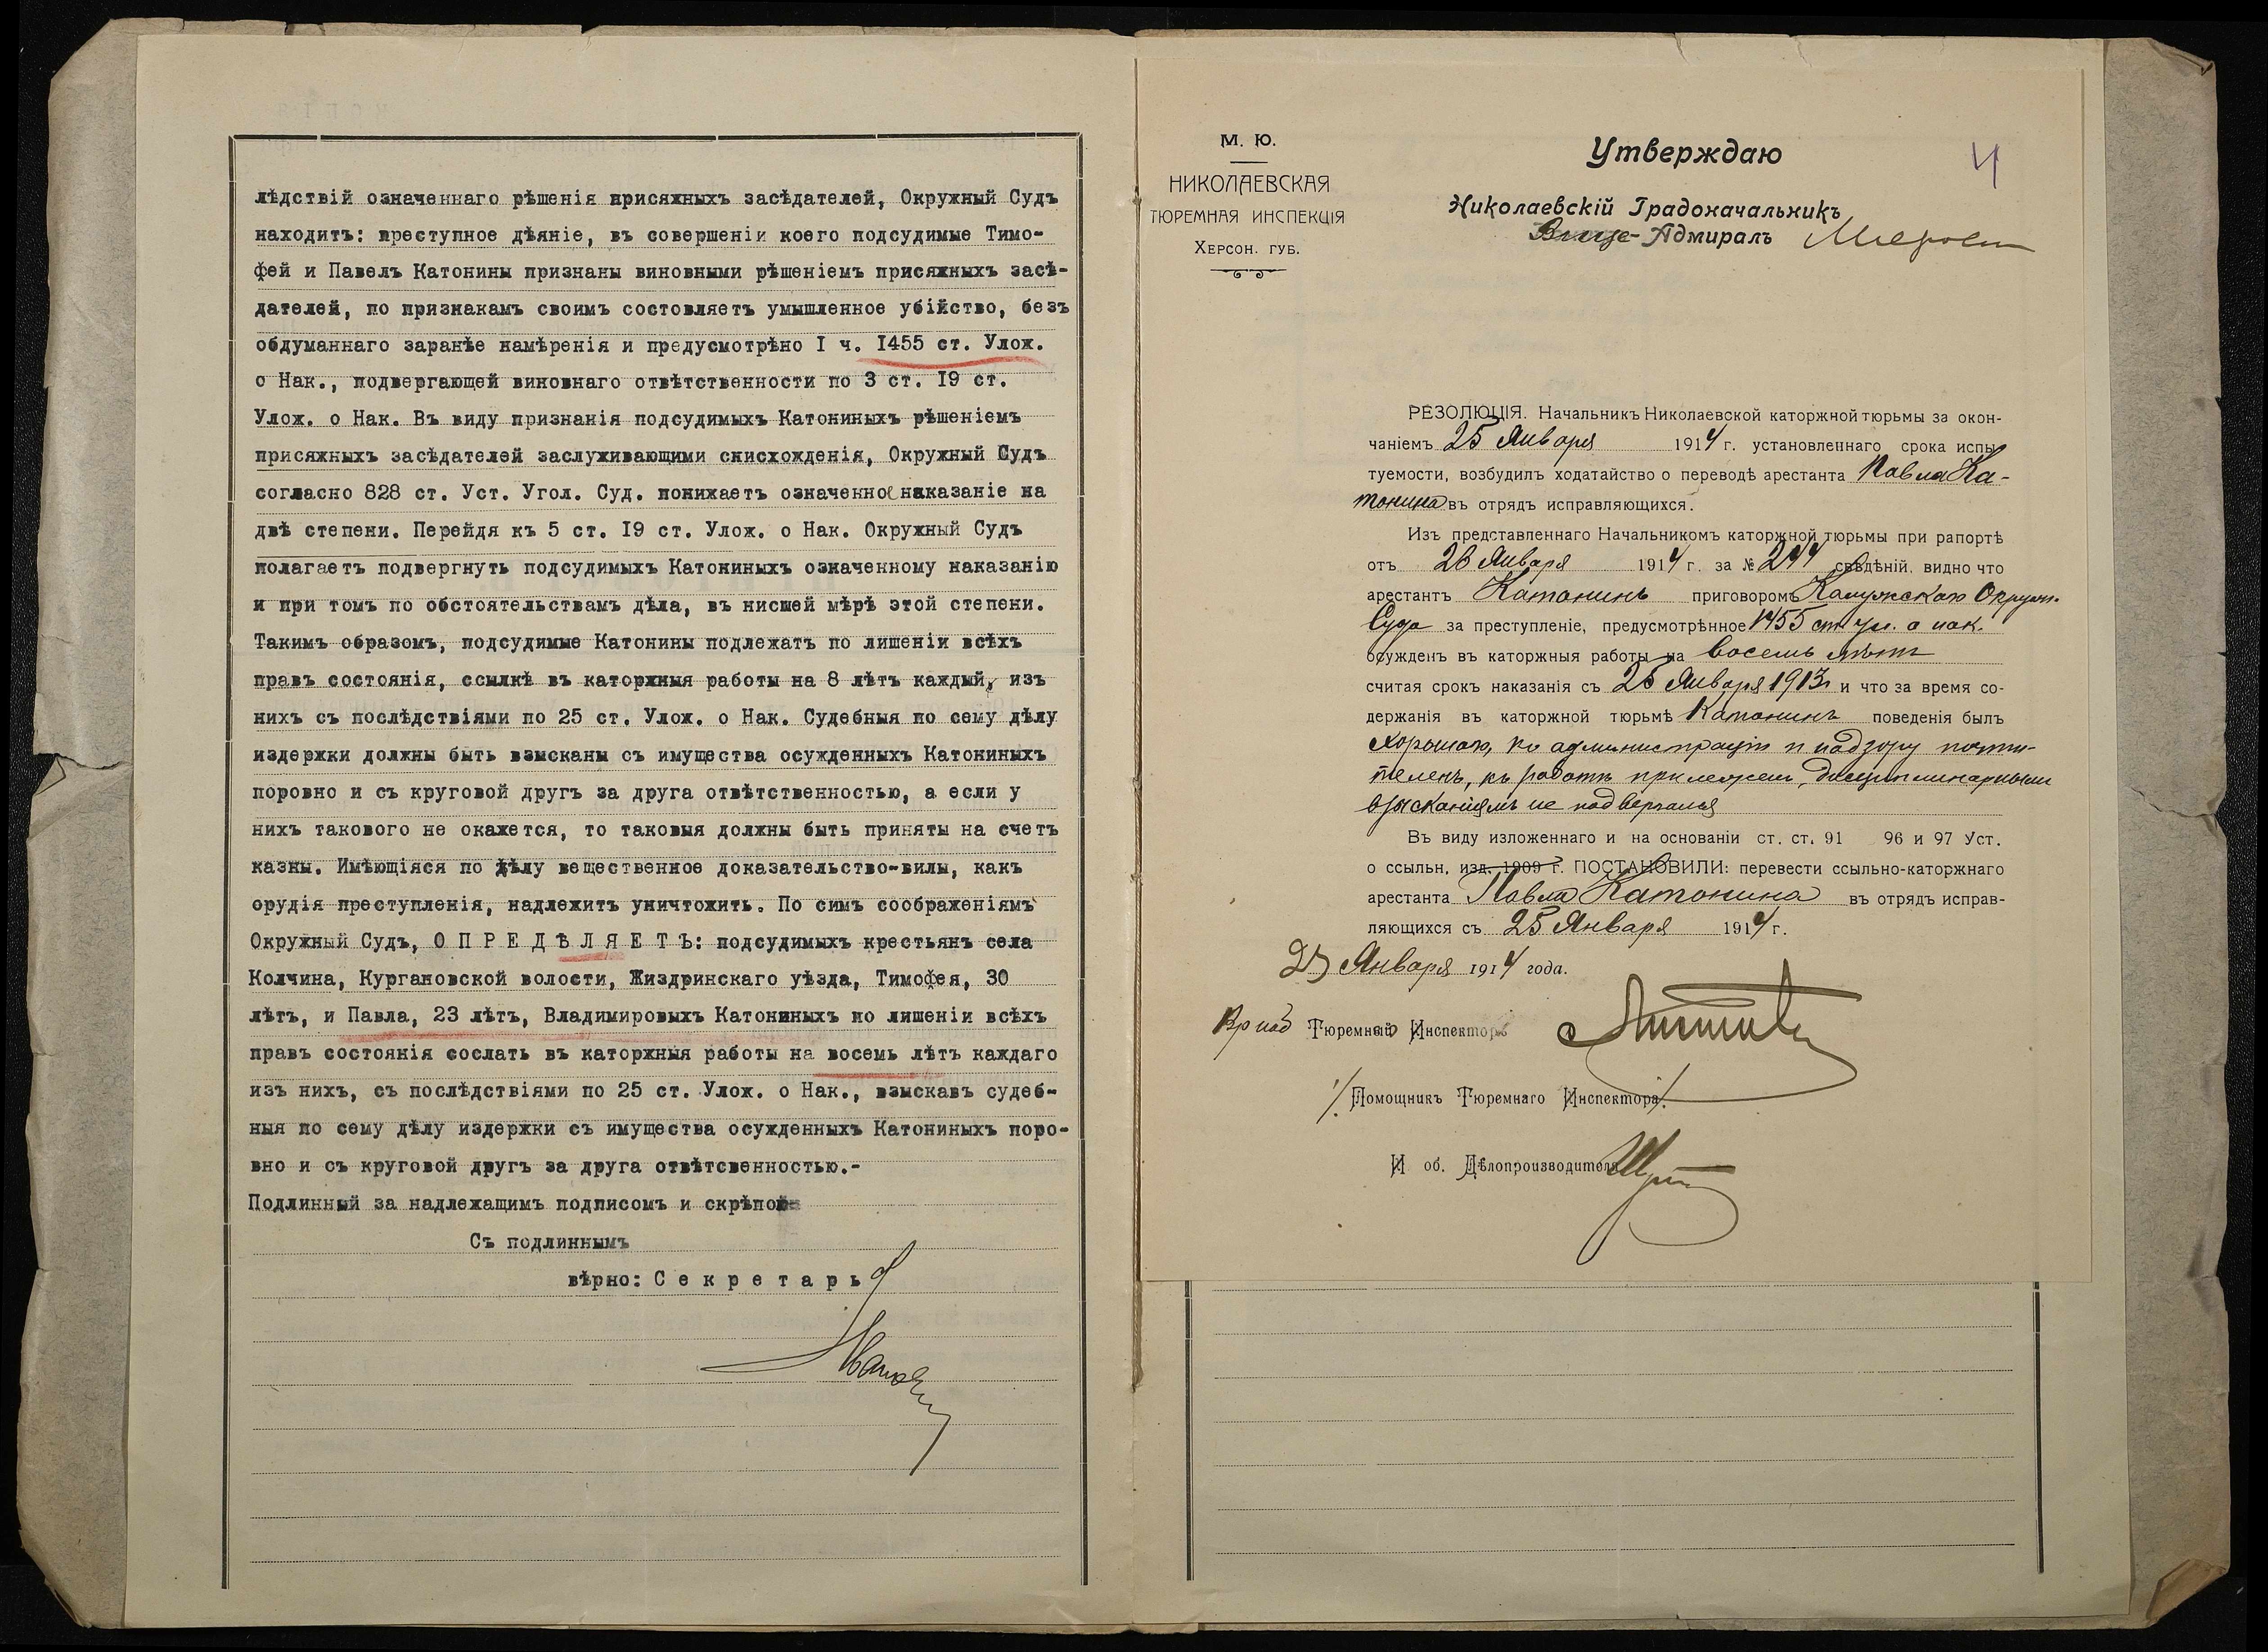 лѣдствій означеннаго рѣшенія присяжныхъ засѣдателей, Окружный Судъ
находитъ: преступное дѣяніе, въ совершеніи коего подсудимые Тимо-
фей и Павелъ Катонины признаны виновными рѣшеніемъ присяжныхъ засѣ-
дателей, по признакамъ своимъ состовляетъ умышленное убійство, безъ
обдуманнаго заранѣе намѣренія и предусмотрѣно I ч. I455 ст. Улож.
о Нак., подвергающей виновнаго отвѣтственности по 3 ст. I9 ст.
Улож. о Нак. Въ виду признанія подсудимыхъ Катониныхъ рѣшеніемъ
присяжныхъ засѣдателей заслуживающими снисхожденія, Окружный Судъ
согласно 828 ст. Уст. Угол. Суд. понижаетъ означенное наказаніе на
двѣ степени. Перейдя къ 5 ст. I9 ст. Улож. о Нак. Окружный Судъ
полагаетъ подвергнуть подсудимыхъ Катониныхъ означенному наказанію
и при томъ по обстоятельствамъ дѣла, въ нисшей мѣрѣ этой степени.
Такимъ образомъ, подсудимые Катонины подлежатъ по лишеніи всѣхъ
правъ состоянія, ссылкѣ въ каторжныя работы на 8 лѣтъ каждый, изъ
нихъ съ послѣдствіями по 25 ст. Улож. о Нак. Судебныя по сему дѣлу
издержки должны быть взысканы съ имущества осужденныхъ Катониныхъ
поровно и съ круговой другъ за друга отвѣтственностью, а если у
нихъ такового не окажется, то таковыя должны быть приняты на счетъ
казны. Имѣющіяся по дѣлу вещественное доказательство-вилы, какъ
орудія преступленія, надлежитъ уничтожить. По симъ соображеніямъ
Окружный Судъ, О П Р Е Д Ѣ Л Я Е Т Ъ: подсудимыхъ крестьянъ села
Колчина, Кургановской волости, Жиздринскаго уѣзда, Тимофея, 30
лѣтъ, и Павла, 23 лѣтъ, Владимировыхъ Катониныхъ по лишеніи всѣхъ
правъ состоянія сослать въ каторжныя работы на восемь лѣтъ каждаго
изъ нихъ, съ послѣдствіями по 25 ст. Улож. о Нак., взыскавъ судеб-
ныя по сему дѣлу издержки съ имущества осужденныхъ Катониныхъ поро-
вно и съ круговой другъ за друга отвѣтсвенностью.-
Подлинный за надлежащимъ подписомъ и скрѣпой
Съ подлиннымъ
вѣрно: С е к р е т а р ь
М. Ю.
НИКОЛАЕВСКАЯ
ТЮРЕМНАЯ ИНСПЕКЦІЯ
ХЕРСОН. ГУБ.
Утверждаю
4
Николаевскій Градоначальникъ
Вице-Адмиралъ
РЕЗОЛЮЦІЯ. Начальникъ Николаевской каторжной тюрьмы за окон-
чаніемъ 25 Января 1914 г. установленнаго срока испы-
туемости, возбудилъ ходатайство о переводѣ арестанта Павла Ка-
тонина въ отрядъ исправляющихся.
Изъ представленнаго Начальникомъ каторжной тюрьмы при рапортѣ
отъ 26 Января 1914 г. за № 244 свѣдѣній, видно что
арестантъ Катонинъ приговоромъ Калужскаго Окружн.
Суда за преступленіе, предусмотрѣнное 1455 ст. Ул. о нак.
осужденъ въ каторжныя работы на восемь лѣтъ
считая срокъ наказанія съ 25 Января 1913 г. и что за время со-
держанія въ каторжной тюрьмѣ Катонинъ поведенія былъ
хорошаго, къ администраціи и надзору почти-
теленъ, къ работѣ прилеженъ, дисциплинарнымъ
взысканіямъ не подвергался
Въ виду изложеннаго и на основаніи ст. ст. 91 96 и 97 Уст.
о ссыльн, изд. 1909 г. ПОСТАНОВИЛИ: перевести ссыльно-каторжнаго
арестанта Павла Катонина въ отрядъ исправ-
ляющихся съ 25 Января 1914 г.
27 Января 1914 года.
Тюремный Инспекторъ
Помощникъ Тюремнаго Инспектора
И об. Дѣлопроизводителя